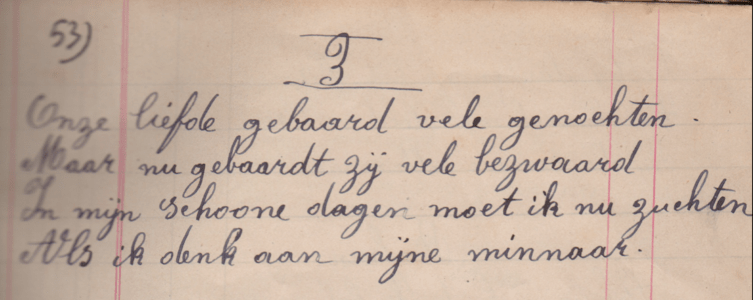 53)
3
Onze liefde gebaard vele genoehten.
Maar nu gebaardt zij vele bezwaard
In mijn schoone dagen moet ik nu zuchten
Als ik denk aan mijne minnaar.